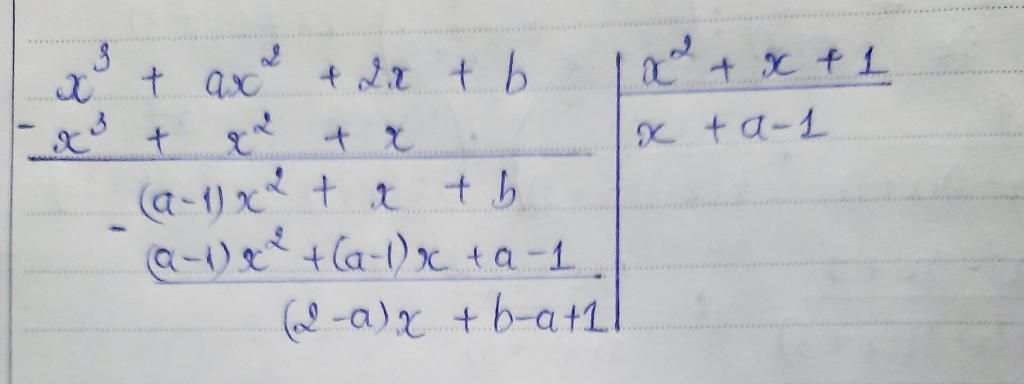 x³ + ax² + 2x + b | x² + x + 1
- x³ + x² + x | x + a-1
(a-1)x² + x + b
- (a-1)x² + (a-1)x + a-1
(2-a)x + b-a+1